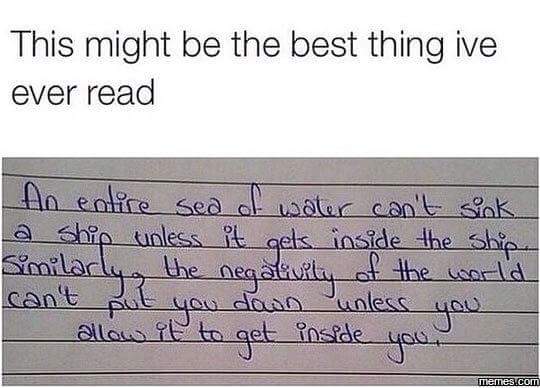 This might be the best thing ive
ever read
An entire sea of water can't sink
a ship unless it gets inside the ship.
Similarly, the negativity of the world
can't put you down unless you
allow it to get inside you.
memes.com